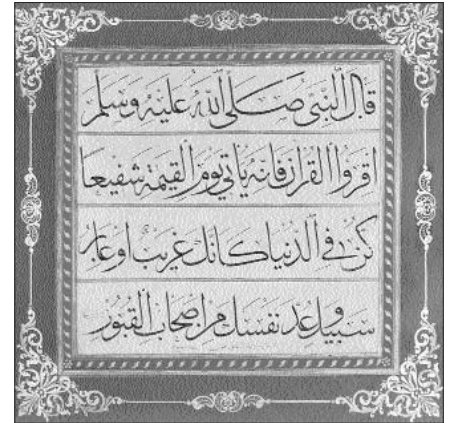 قال النبي صلى الله عليه وسلم
اقرؤا القرآن فانه ياتي يوم القيمة شفيعا
كن في الدنيا كانك غريب او عابر
سبيل وعد نفسك من اصحاب القبور